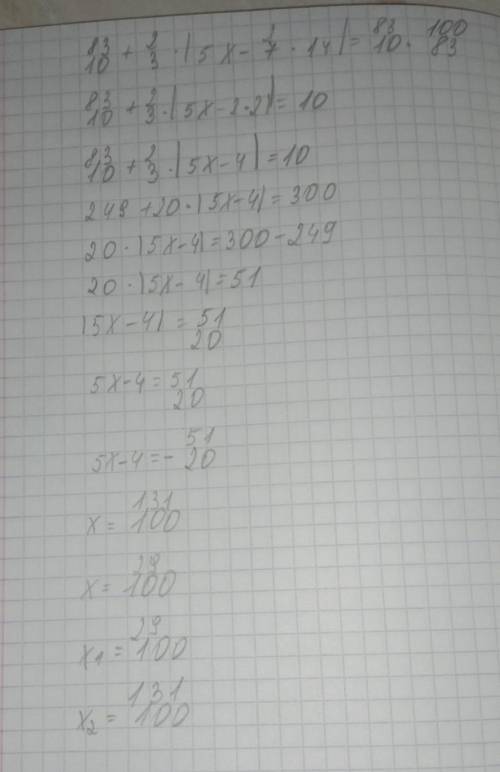 83/10 + 2/3 · |5x - 2/7 · 14| = 83/10 · 100/83
83/10 + 2/3 · |5x - 2·2| = 10
83/10 + 2/3 · |5x-4| = 10
249 + 20 · |5x-4| = 300
20 · |5x-4| = 300 - 249
20 · |5x-4| = 51
|5x-4| = 51/20
5x-4 = 51/20
5x-4 = - 51/20
x = 131/100
x = 29/100
x₁ = 29/100
x₂ = 131/100